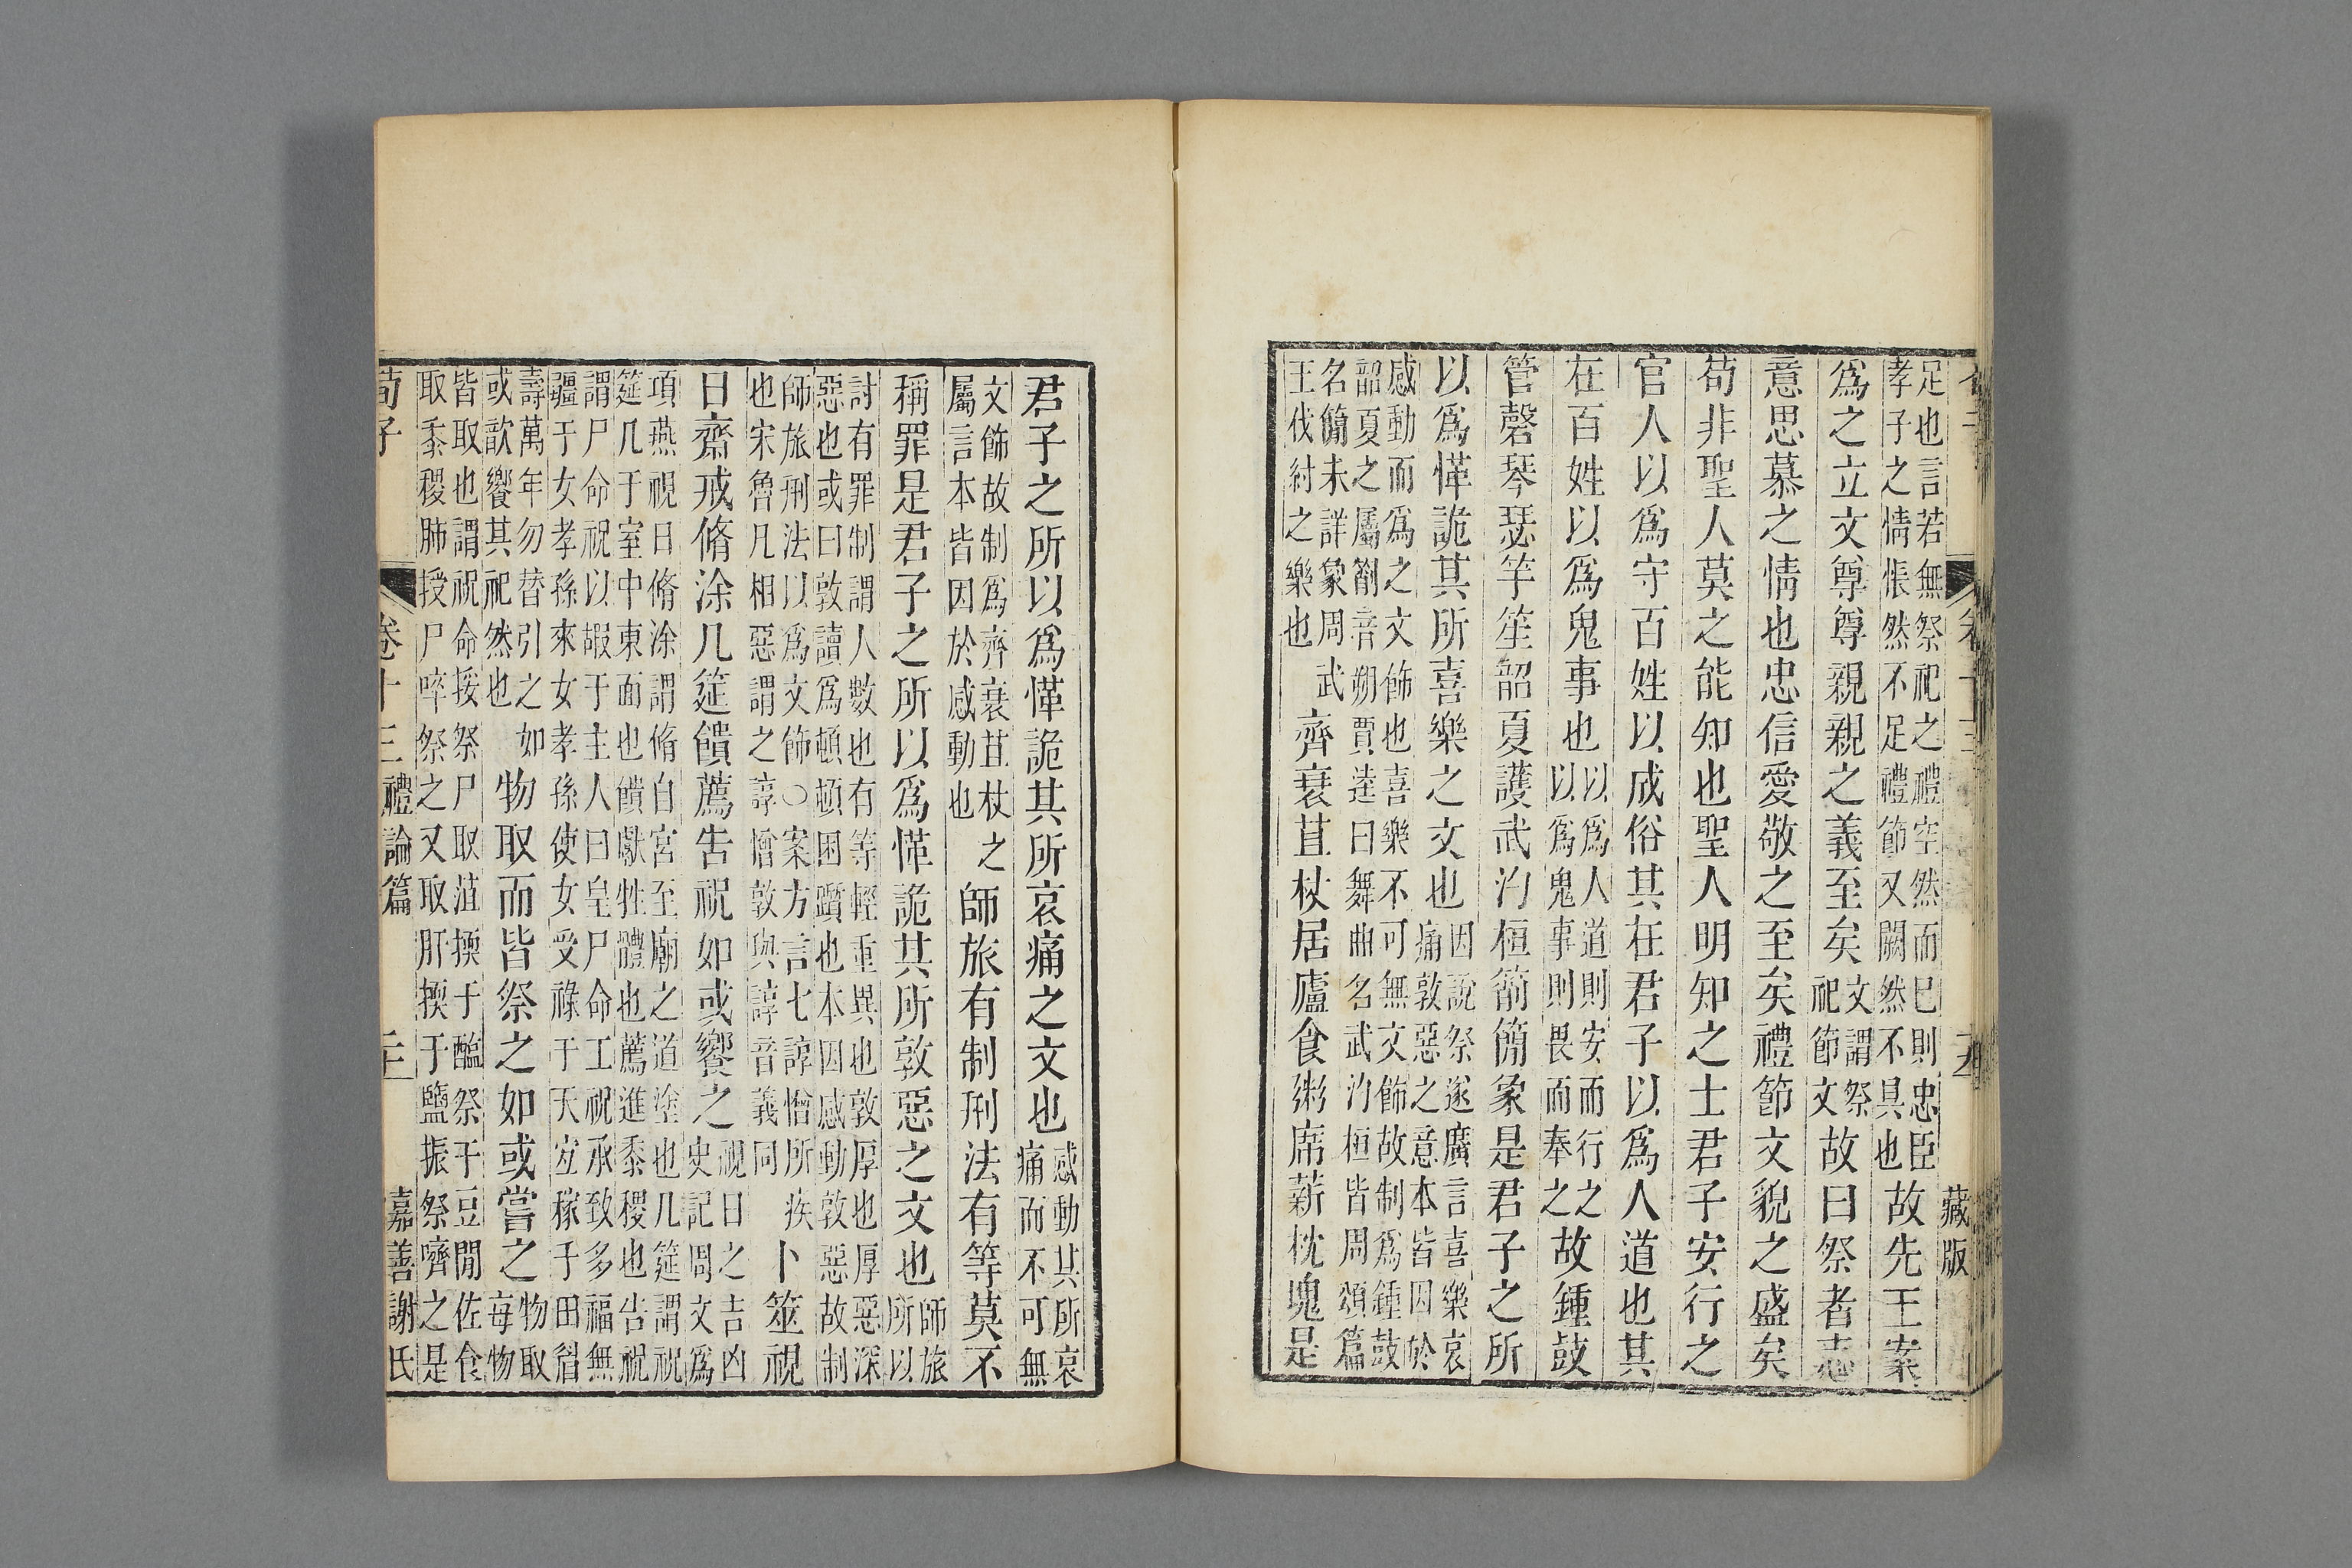 藏版
足也言若無祭祀之禮空然而已則忠臣孝子之情悵然不足禮節又闕然不具也故先王案
爲之立文尊尊親親之義至矣文謂祭祀節文故曰祭者志
意思慕之情也忠信愛敬之至矣禮節文貌之盛矣
苟非聖人莫之能知也聖人明知之士君子安行之
官人以爲守百姓以成俗其在君子以爲人道也其
在百姓以爲鬼事也以爲人道則安而行之以爲鬼事則畏而奉之故鍾鼓
管磬琴瑟竽笙韶夏護武汋桓箾簡象是君子之所
以爲愅詭其所喜樂之文也因說祭遂廣言喜樂哀痛敦惡之意本皆因於
感動而爲之文飾也喜樂不可無文飾故制爲鍾鼓韶夏之屬箾音朔賈逵曰舞曲名武汋桓皆周頌篇
名簡未詳象周武王伐紂之樂也齊衰苴杖居廬食粥席薪枕塊是
君子之所以爲愅詭其所哀痛之文也感動其所哀痛而不可無
文飾故制爲齊衰苴杖之屬言本皆因於感動也師旅有制刑法有等莫不
稱罪是君子之所以爲愅詭其所敦惡之文也師旅所以
討有罪制謂人數也有等輕重異也敦厚也厚惡深惡也或曰敦讀爲頓頓困躓也本因感動敦惡故制
師旅刑法以爲文飾○案方言七諄憎所疾也宋魯凡相惡謂之諄憎敦與諄音義同卜筮視
日齋戒脩涂几筵饋薦告祝如或饗之視日之吉凶史記周文爲
項燕視日脩涂謂脩自宮至廟之道塗也几筵謂祝筵几于室中東面也饋獻牲體也薦進黍稷也告祝
謂尸命祝以嘏于主人曰皇尸命工祝承致多福無疆于女孝孫來女孝孫使女受祿于天宜稼于田眉
壽萬年勿替引之如或歆饗其祀然也物取而皆祭之如或嘗之物取每物
皆取也謂祝命挼祭尸取菹擩于醢祭于豆閒佐食取黍稷肺授尸啐祭之又取肝擩于鹽振祭嚌之是
荀子 卷十三 禮論篇 二十 嘉善謝氏